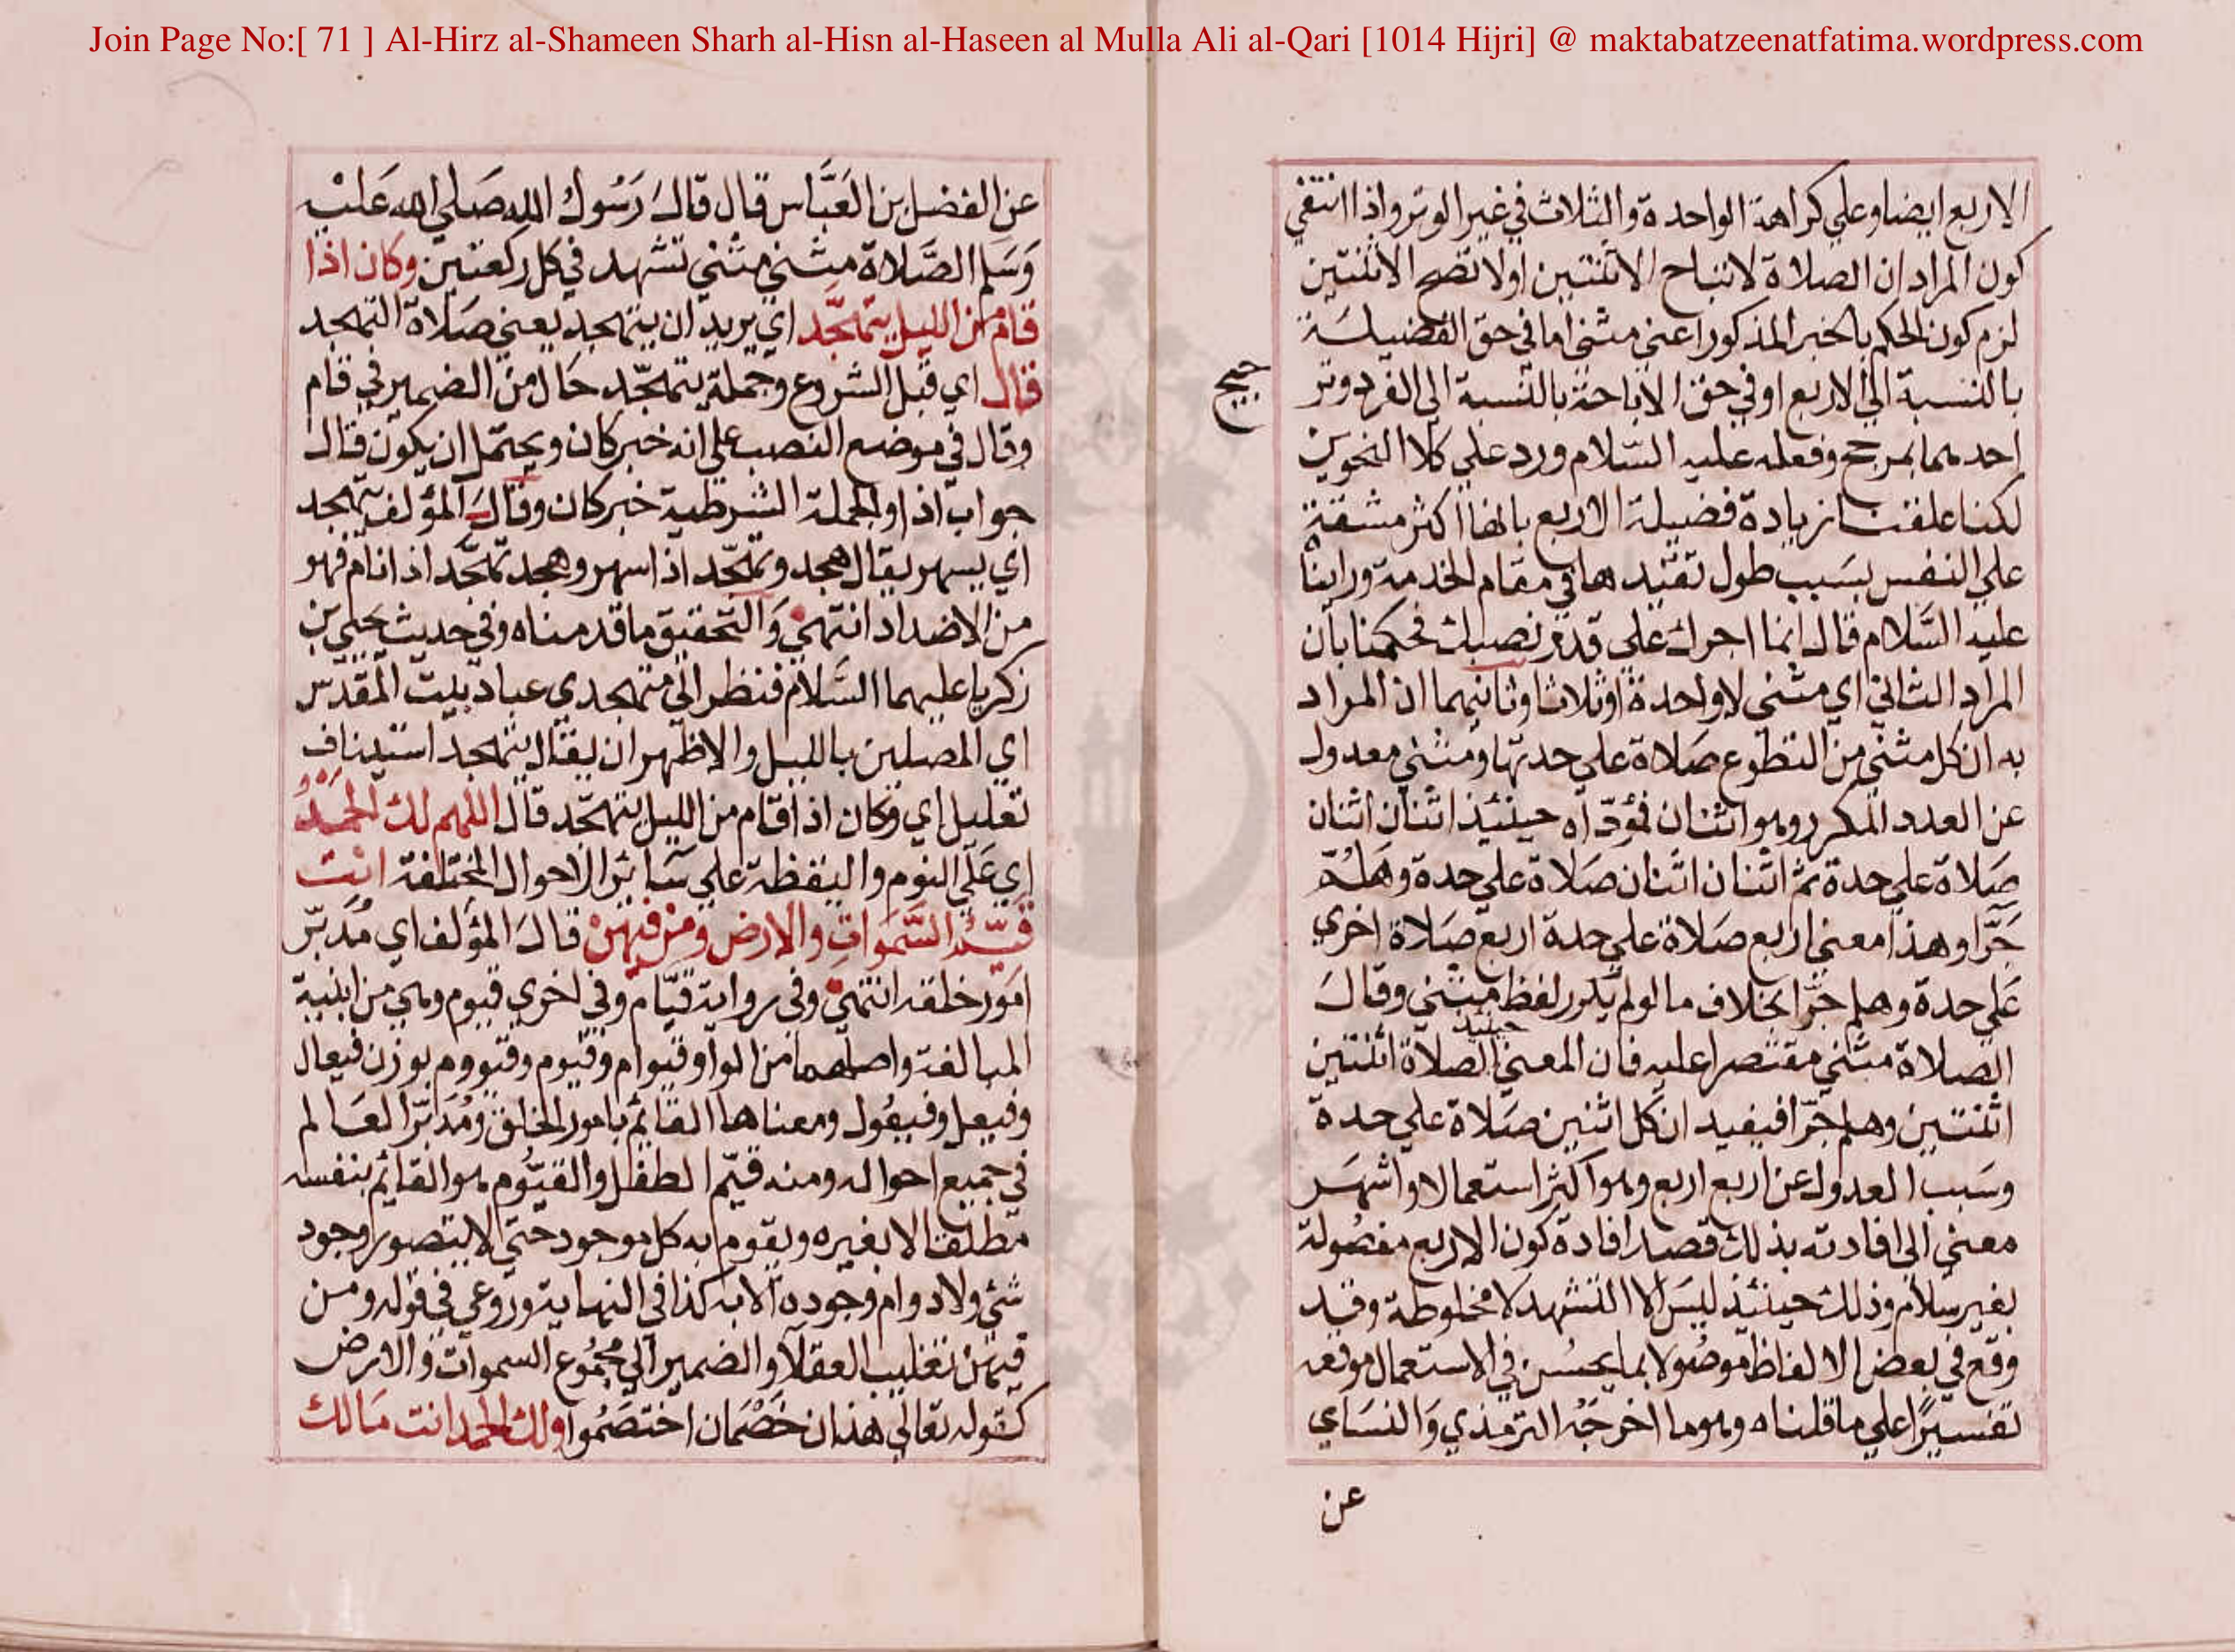 Join Page No:[ 71 ] Al-Hirz al-Shameen Sharh al-Hisn al-Haseen al Mulla Ali al-Qari [1014 Hijri] @ maktabatzeenatfatima.wordpress.com
الاربع ايضا وعلي كراهة الواحدة والثلاث في غير الوتر واذا انتفي
كون المراد ان الصلاة لا تباح الا ثنتين او لا تصح الا ثنتين
لزم كون الحكم بالخبر المذكور اعني مثني اما في حق الفضيلة
بالنسبة الي الاربع او في حق الاباحة بالنسبة الي الفرد وتر
جيح
احدهما بمرجح وفعله عليه السلام ورد علي كلا النحوين
لكنا عقلنا زيادة فضيلة الاربع بانها اكثر مشقة
علي النفس بسبب طول تقييدها في مقام الخدمة وراينا
عليه السلام قال انما اجرك علي قدر نصبك فحكمنا بان
المراد الثاني اي مثني لا واحدة او ثلاثا وثانيهما ان المراد
به ان كل مثني من التطوع صلاة علي حدتها ومثني معدول
عن العدد المكرر وهو اثنان فمؤداه حينئذ اثنان اثنان
صلاة علي حدة ثم اثنان اثنان صلاة علي حدة وهلم
جرا وهذا معني اربع صلاة علي حدة اربع صلاة اخري
علي حدة وهلم جرا بخلاف ما لو لم يكرر لفظ مثني وقال
الصلاة مثني مقتصرا عليه فان المعني حينئذ الصلاة اثنتين
اثنتين وهلم جرا فيفيد ان كل اثنين صلاة علي حدة
وسبب العدول عن اربع اربع وهو اكثر استعمالا واشهر
معني الي افادته بذلك قصد افادة كون الاربع مفصولة
بغير سلام وذلك حينئذ ليس الا التشهد لا مخلوطة وقد
وقع في بعض الالفاظ موصولا بما يحسن في الاستعمال موقعه
تفسيرا علي ما قلناه وهو ما اخرجه الترمذي والنساي
عن
عن الفضل بن العباس قال قال رسول الله صلي الله عليه
وسلم الصلاة مثني مثني تشهد في كل ركعتين وكان اذا
قام من الليل يتهجد اي يريد ان يتهجد يعني صلاة التهجد
قال اي قبل الشروع وجملة يتهجد حال من الضمير في قام
وقال في موضع النصب علي انه خبر كان ويحتمل ان يكون قال
جواب اذا والجملة الشرطية خبر كان وقال المؤلف يتهجد
اي يسهر يقال هجد وتهجد اذا سهر وهجد تهجد اذا نام فهو
من الاضداد انتهي والتحقيق ما قدمناه وفي حديث يحيي بن
زكريا عليهما السلام فنظر الي متهجدي عباد بيت المقدس
اي المصلين بالليل والاظهر ان يقال يتهجد استيناف
تعليل اي وكان اذا قام من الليل يتهجد قال اللهم لك الحمد
اي علي النوم واليقظة علي سائر الاحوال المختلفة انت
قيم السموات والارض ومن فيهن قال المؤلف اي مدبر
امور خلقه انتهي وفي رواية قيام وفي اخري قيوم وهي من ابنية
المبالغة واصلهما من الواو قيوام وقيوم وقيووم بوزن فيعال
وفيعل وفيعول ومعناها القائم بامور الخلق ومدبر العالم
في جميع احواله ومنه قيم الطفل والقيوم هو القائم بنفسه
مطلقا لا بغيره ويقوم به كل موجود حتي لا يتصور وجود
شئ ولا دوام وجوده الا به كذا في النهاية وروعي في قوله ومن
فيهن تغليب العقلاء والضمير الي مجموع السموات والارض
كقوله تعالي هذان خصمان اختصموا ولك الحمد انت مالك